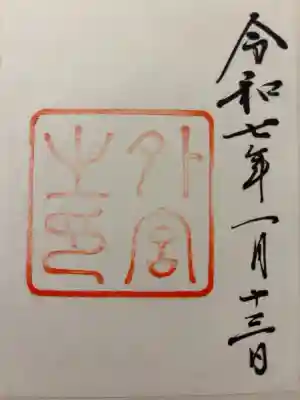 令和七年一月十三日
外宮
之印